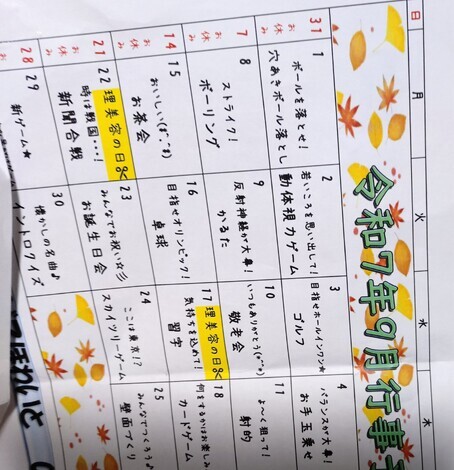 令和7年9月行事
日 月 火 水 木
31
お休み
1
ボールを落とせ!
穴あきボール落とし
2
若いころを思い出して!
動体視力ゲーム
3
目指せホールインワン☆
ゴルフ
4
バランスが大事!
お手玉乗せ
7
お休み
8
ストライク!
ボーリング
9
反射神経が大事!
かるた
10
いつもありがとう
敬老会
11
よ～く狙って!
射的
14
お休み
15
おいしい
お茶会
16
目指せオリンピック!
卓球
17
理美容の日
気持ちを込めて!
習字
18
何をするかはお楽しみ
カードゲーム
21
お休み
22
理美容の日
時は戦国・・・!
新聞合戦
23
みんなでお祝い☆彡
お誕生日会
24
ここは東京!?
スカイツリーゲーム
25
みんなでつくろう♪
壁面づくり
28
お休み
29
新ゲーム★
30
懐かしの名曲♪
イントロクイズ